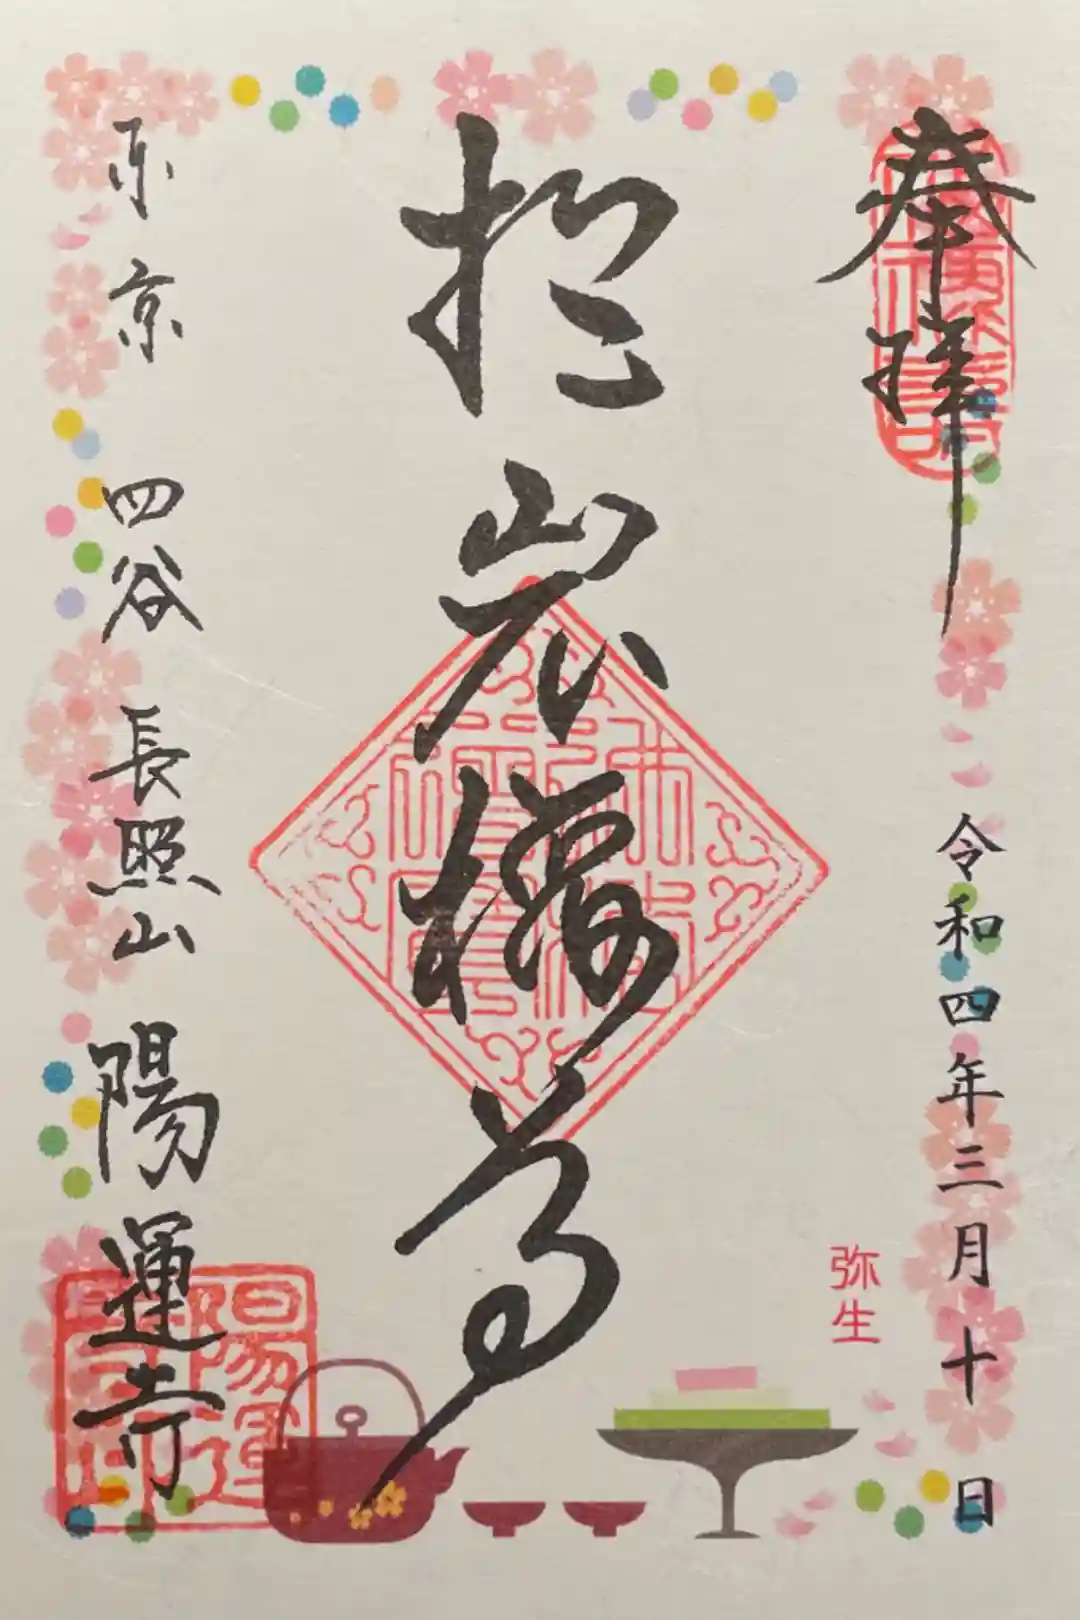 奉拝
令和四年三月十日
弥生
於岩 尊
東京 四谷 長照山 陽運寺